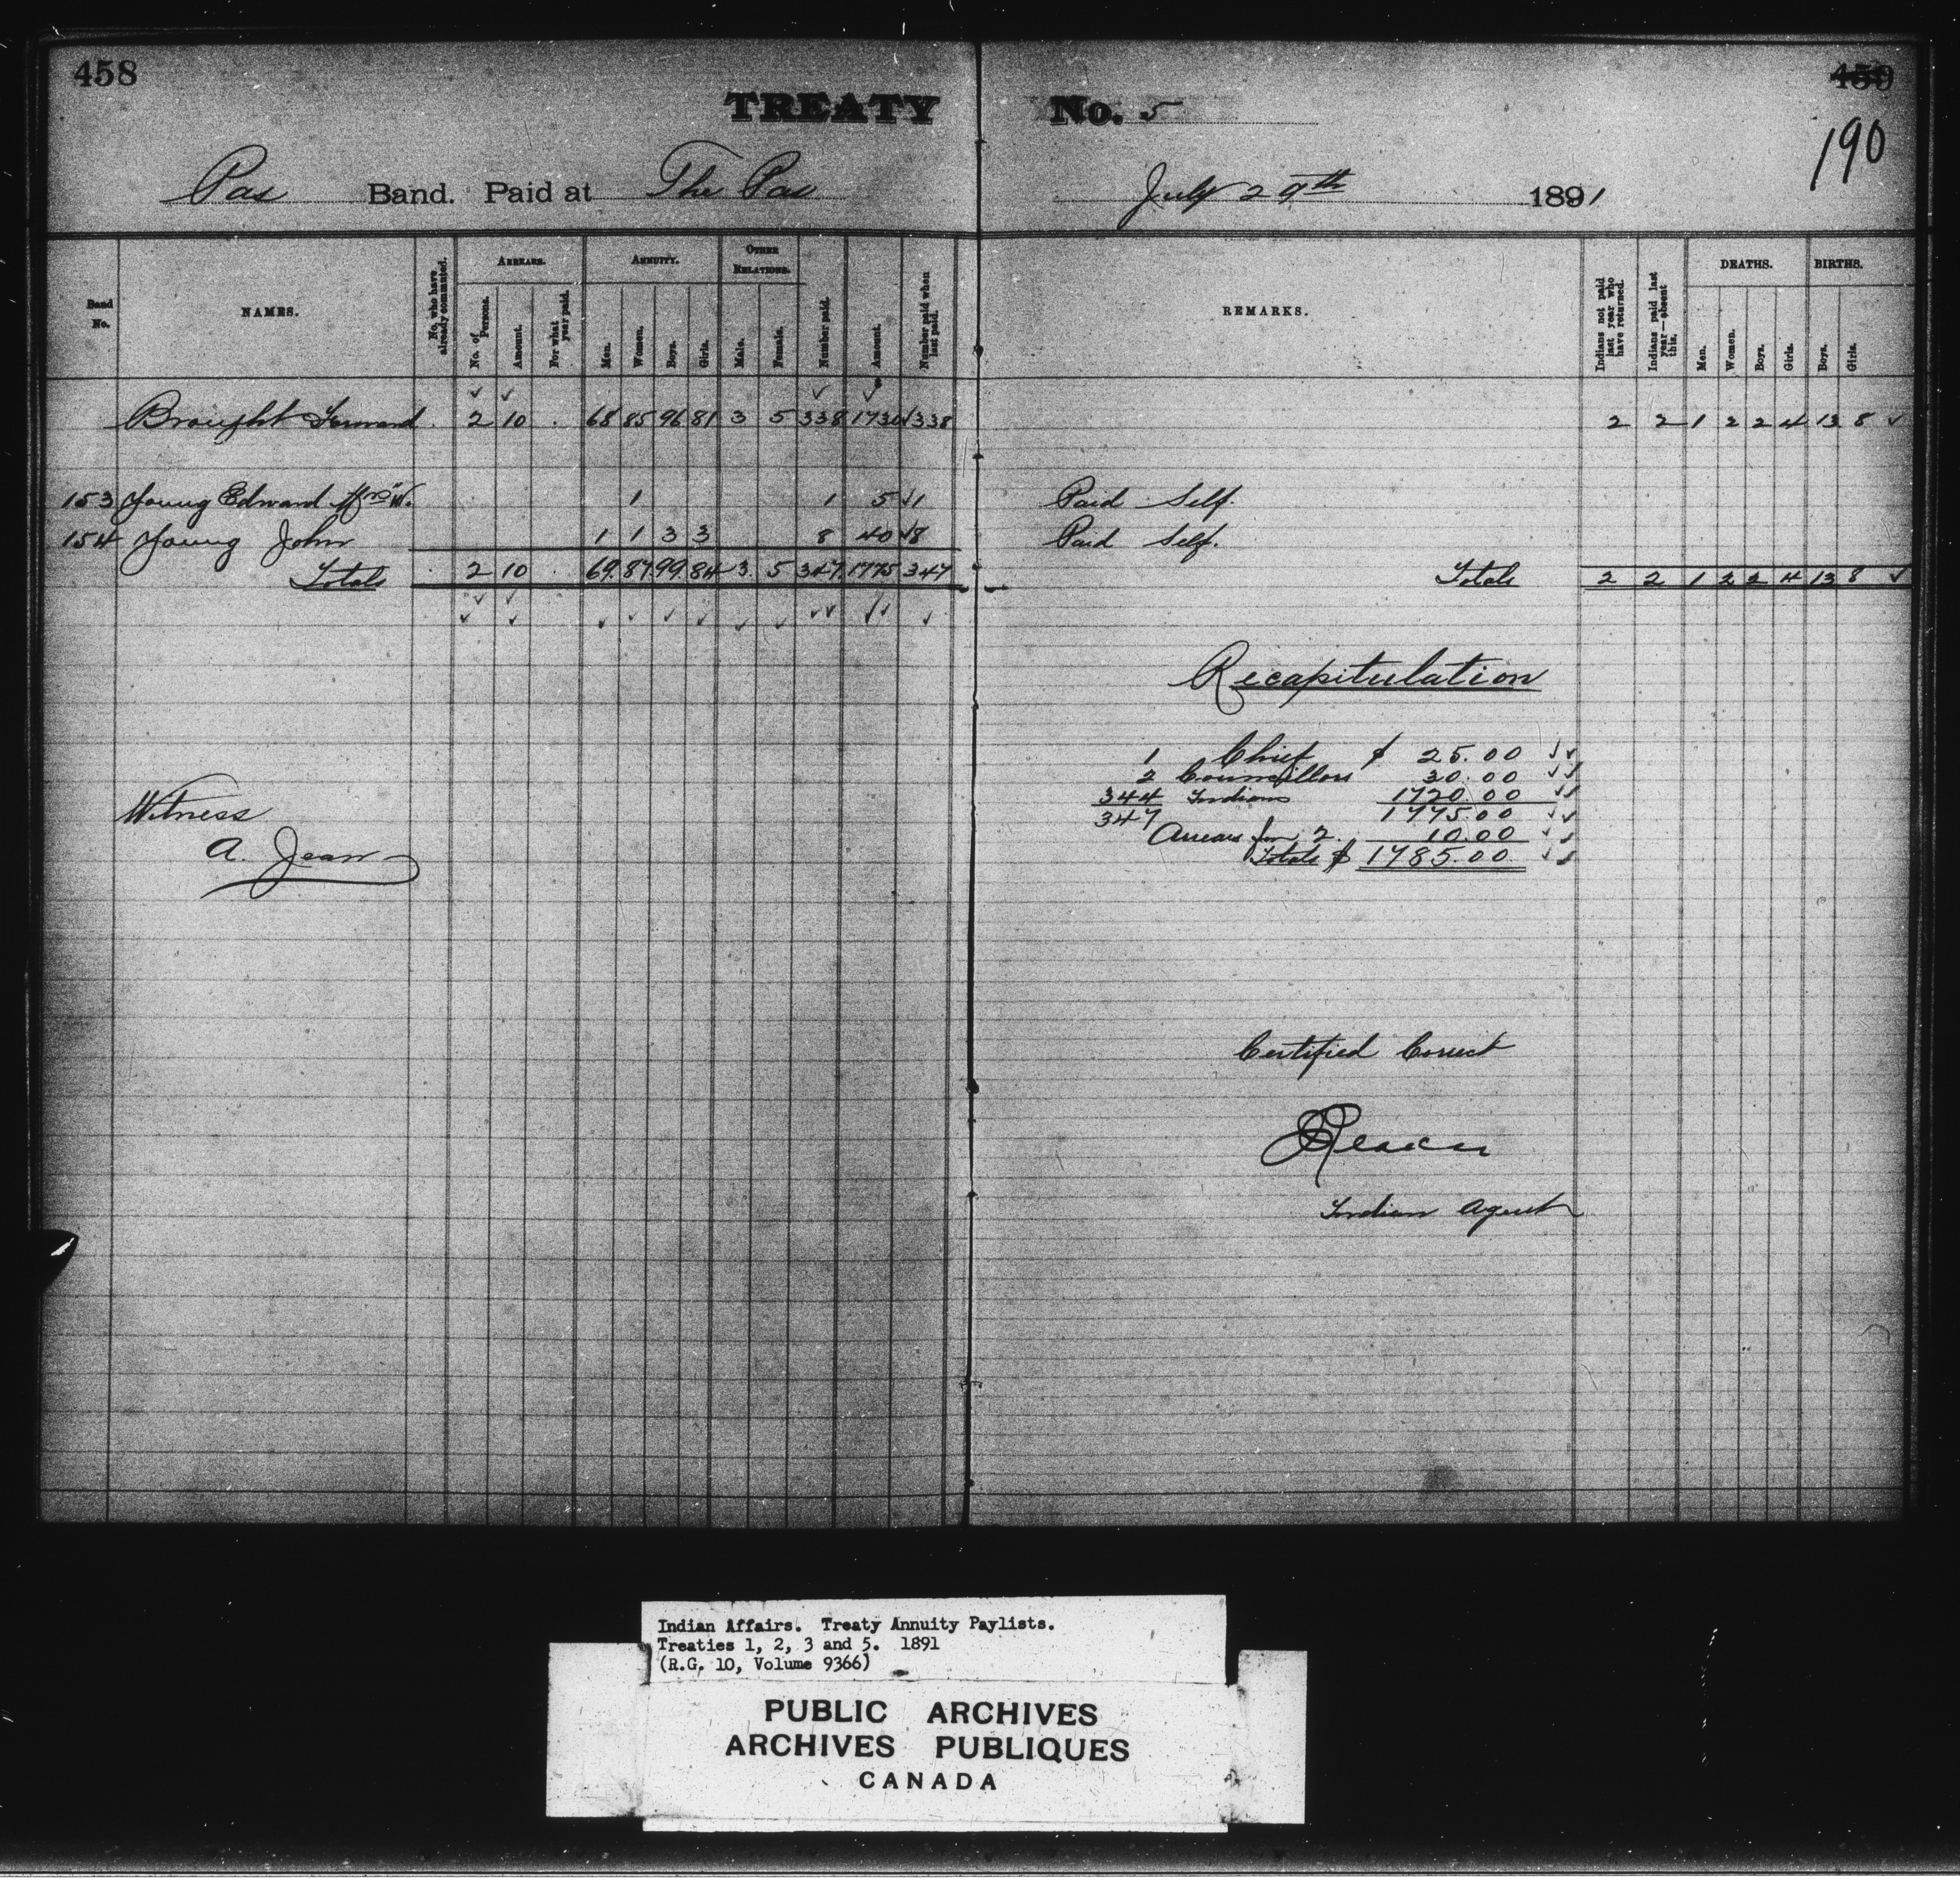 458
459
190
TREATY No. 5
Pas Band. Paid at The Pas July 29th 1891
Band No. NAMES. No. who have already commuted. ARREARS. No. of Persons. Amount. For what year paid. ANNUITY. Men. Women. Boys. Girls. OTHER RELATIONS. Male. Female. Number paid. Amount. Number paid when last paid. REMARKS. Indians not paid last year who have returned. Indians paid last year—absent this. DEATHS. Men. Women. Boys. Girls. BIRTHS. Boys. Girls.
Brought Forward 2 10 68 85 96 81 3 5 338 1730 338 2 2 1 2 2 4 13 8
153 Young Edward Mrs W. 1 1 5 1 Paid Self.
154 Young John 1 1 3 3 8 40 8 Paid Self.
Totals 2 10 69 87 99 84 3 5 347 1775 347 Totals 2 2 1 2 2 4 13 8
Recapitulation
1 Chief $ 25.00
2 Councillors 30.00
344 Indians 1720.00
347 1775.00
Arrears for 2. 10.00
Totals $ 1785.00
Witness
A. Jean
Certified Correct
Reader
Indian Agent
Indian Affairs. Treaty Annuity Paylists.
Treaties 1, 2, 3 and 5. 1891
(R.G. 10, Volume 9366)
PUBLIC ARCHIVES
ARCHIVES PUBLIQUES
CANADA